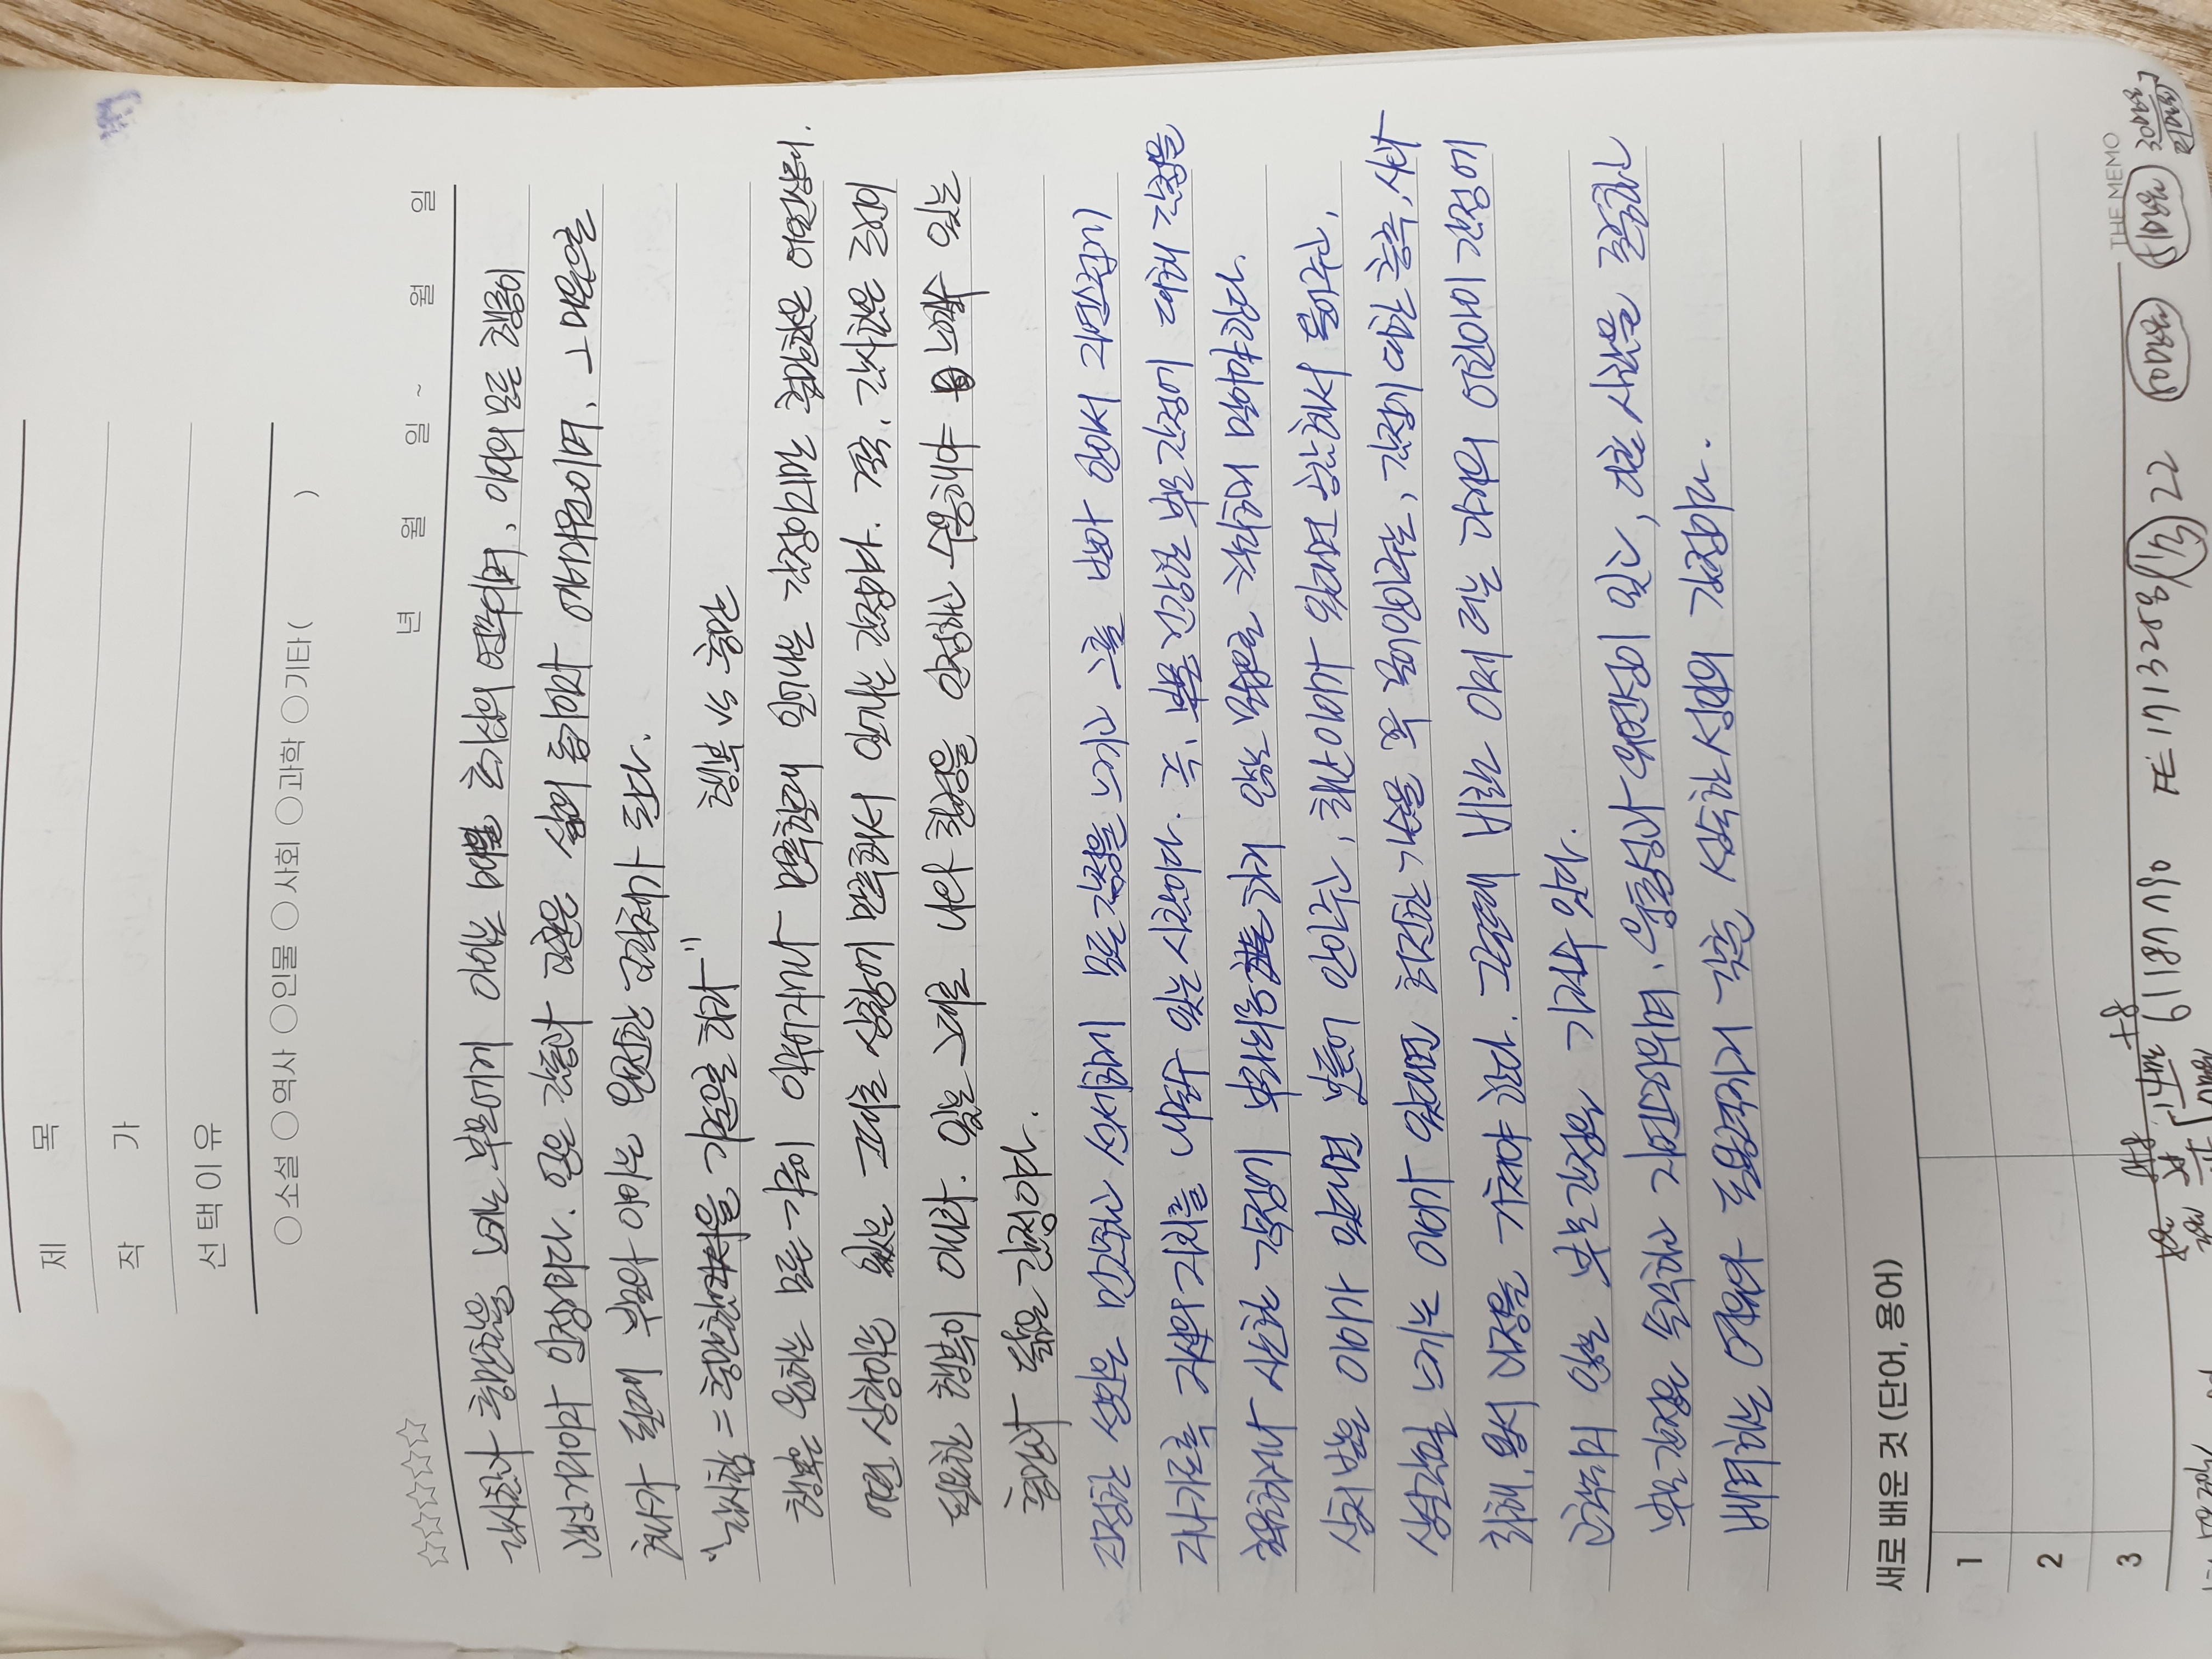 제 목
작 가
선택이유
○소설 ○역사 ○인물 ○사회 ○과학 ○기타 ( )
☆☆☆☆☆ 년 월 일 ~ 월 일
감사함과 충만함을 느끼는 부모에게 아이는 호기심의 연속이며, 아이의 모든 행동이
인정된다. 얻은 감동과 교훈은 삶의 동기이자 에너지원이며, 그 마음으로
하나가 될때 부모와 아이는 완전한 교감체가 된다.
"감사함 = 충만함을 기준으로 하라" 행복 vs 충만
행복은 원하는 모든 것들이 이루어지거나 만족할때 일어나는 감정이지만 충만함은
어떤 상황이든 있는 그대로 상황에 만족해서 일어나는 감정이다. 결국, 감사함은 조건이
필요한 행복이 아니라. 있는 그대로 나와 환경을 인정하고 수용해야 느낄수 있는
충만과 닮은 감정이다.
진정한 성인은 민감하고 섬세하게 모든 감정을 느끼고 그를 받아 안아서 자연스럽게
지나가도록 자신의 지혜를 내줄수 있는 사람이다. 즉, 건강한 부모감정에 대해 감정을
회유하거나 시소한 감정에 하지 않는 모습으로 착각하지 말아야한다.
상처 받은 아이가 있다면 보듬어 안아주고, 화난 아이가 있다면 공감해서 들어주고,
상실감을 느끼는 아이가 있다면 허전한 가슴을 꼭 끌어안아주는, 감정에 대한 충족, 사과
화해, 용서 과정을 거쳐야 한다. 그럴때 비로소 이제 더는 과거의 어린아이 감정에
고착되지 않는 부모감정을 가질수 있다.
부모감정은 솔직하고 자연스러우며, 융통성과 유연성이 있고, 다른 사람을 존중하고
배려하는 여유와 포용력까지 갖춘 성숙한 성인의 감정이다.
새로 배운 것 (단어, 용어)
1
2
3
THE MEMO
+8
61187790 1713258 1/3 22 50만원 51만원